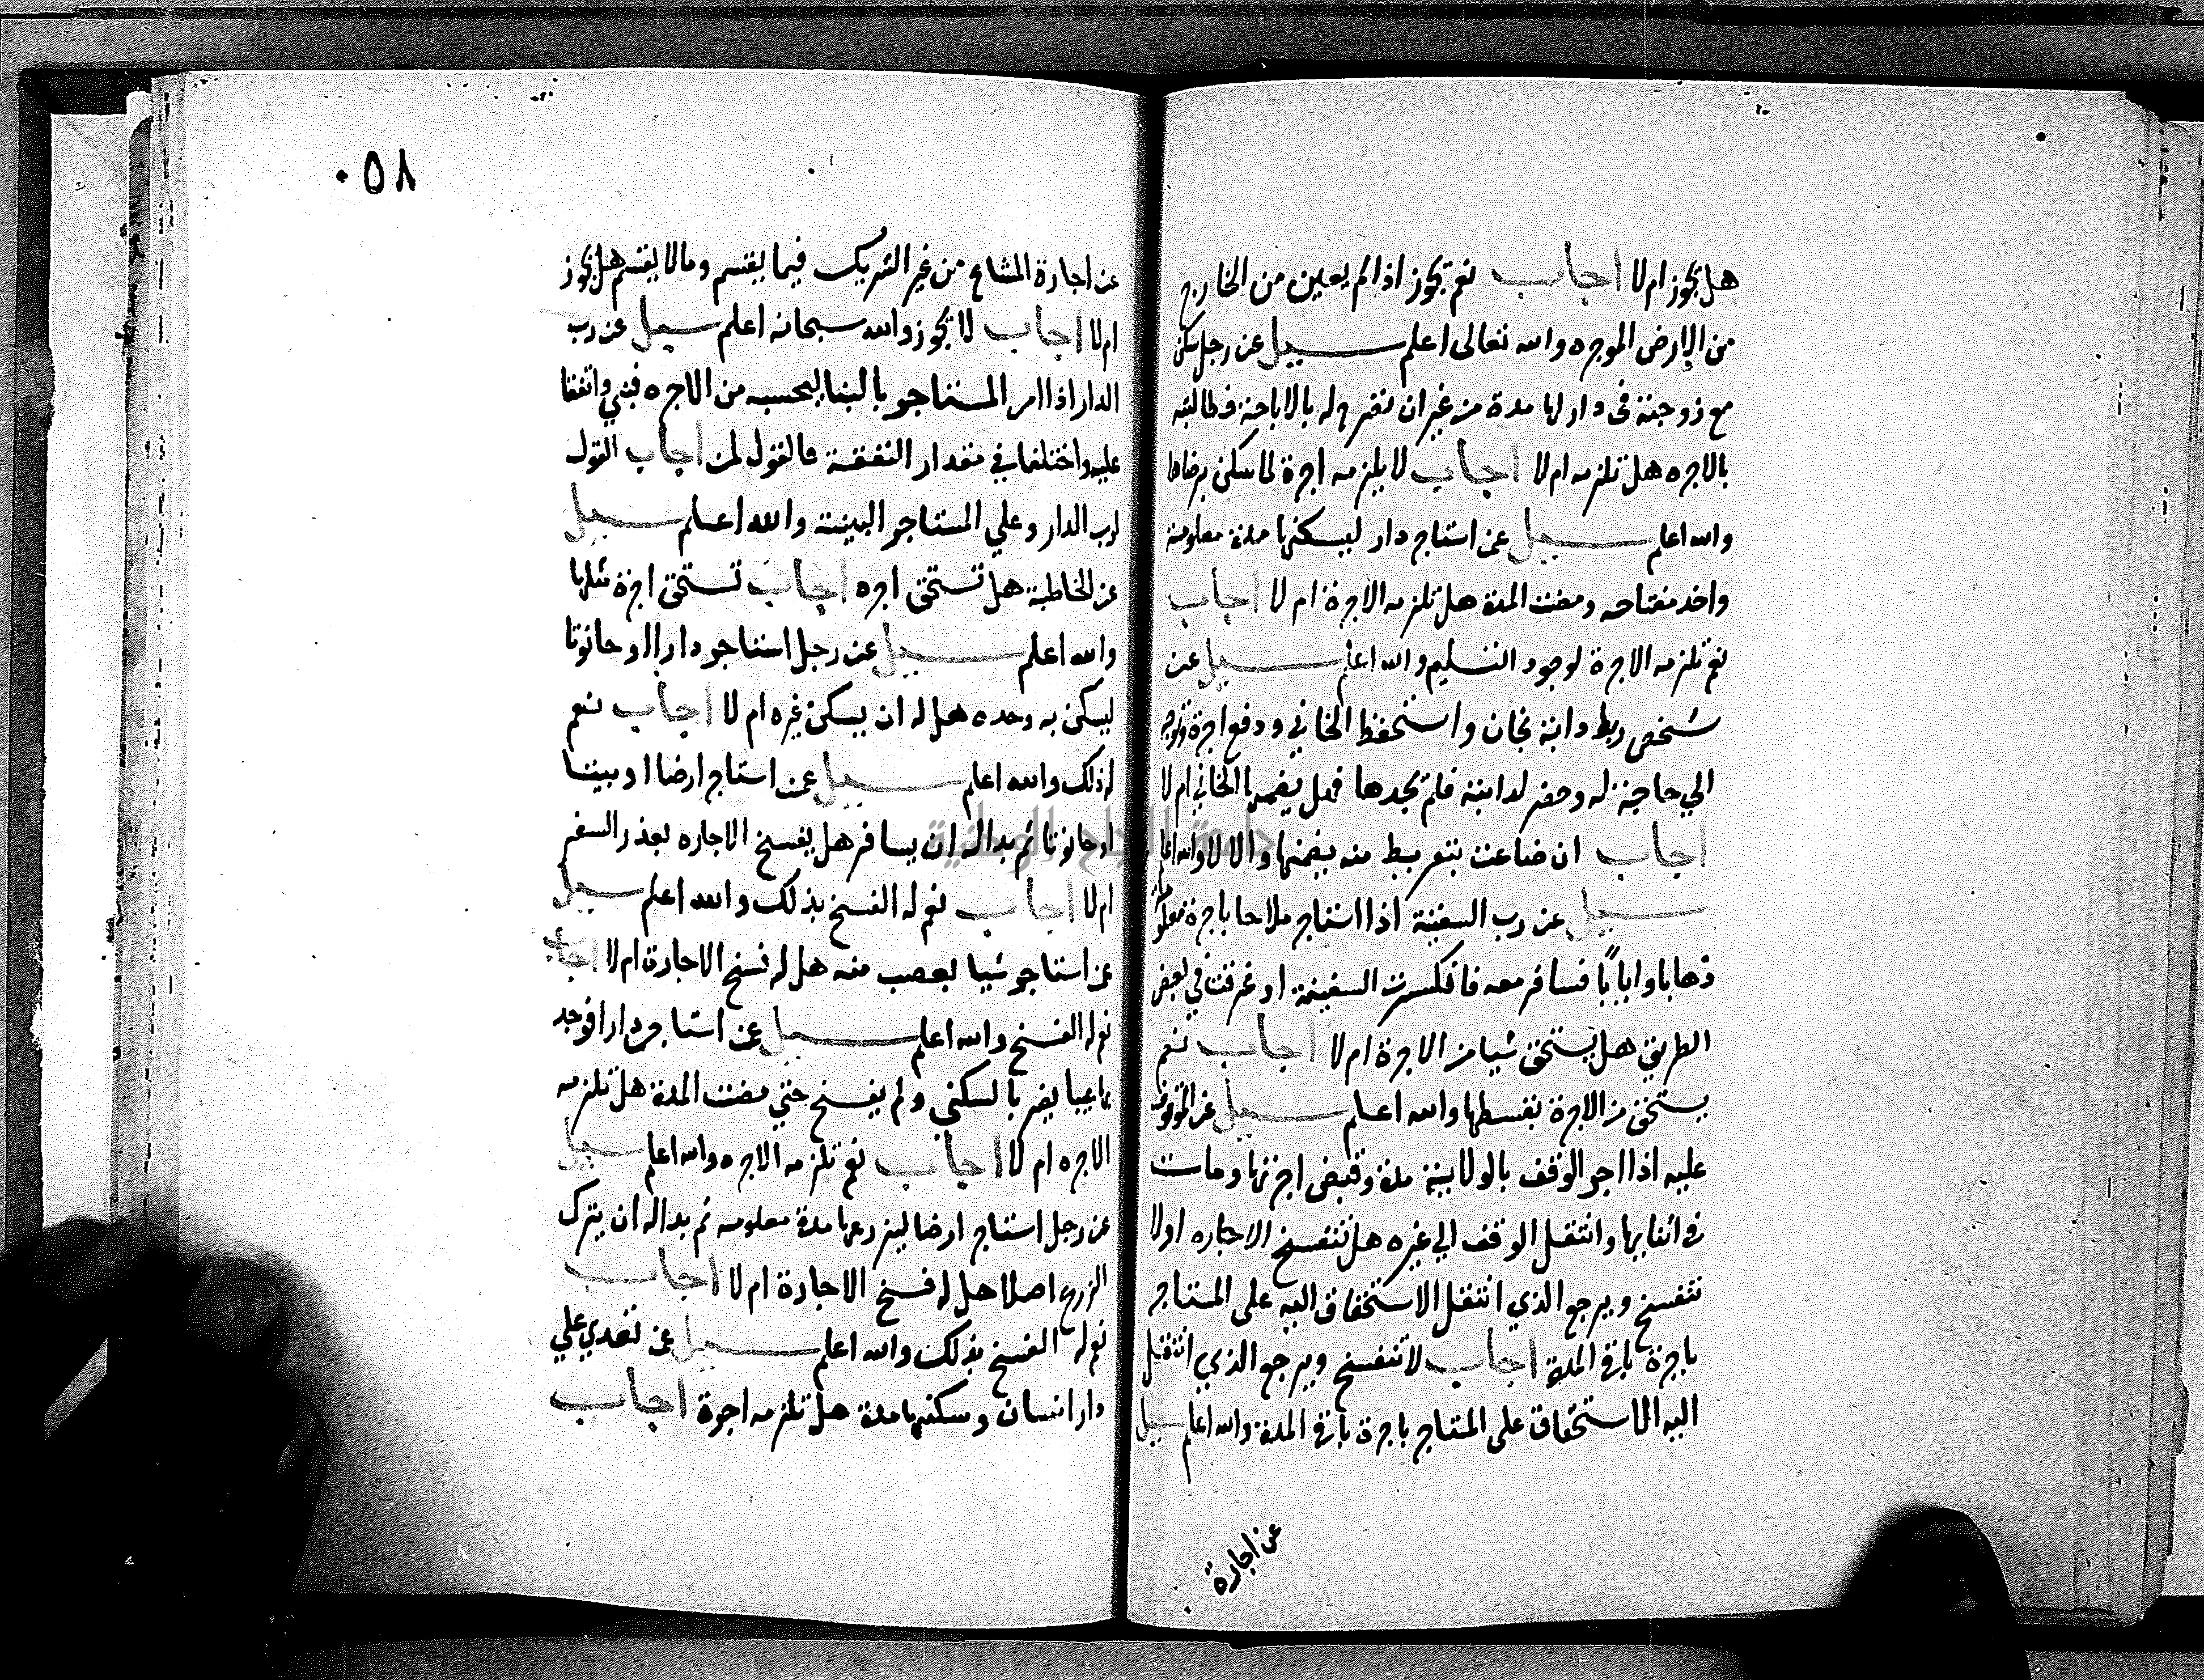 هل يجوز ام لا اجاب نعم يجوز اذا لم يعين من الخارج
من الارض الموجره والله تعالى اعلم سيل عن رجل سكن
مع زوجته في دار لها مدة من غير ان تقر له بالاباحة فطالبته
بالاجره هل تلزمه ام لا اجاب لا يلزمه اجرة لما سكن برضاها
والله اعلم سيل عن استاجر دار ليسكنها مدة معلومة
واخد مفتاحه ومضت المدة هل تلزمه الاجرة ام لا اجاب
نعم تلزمه الاجرة لوجود التسليم والله اعلم سيل عن
شخص ربط دابة بخان واستحفظ الخاني ودفع اجرة وتوجه
الي حاجة له وحضر لدابته فلم يجدها فهل يضمنها الخاني ام لا
اجاب ان ضاعت بتفريط منه يضمنها والا لا والله اعلم
سيل عن رب السفينة اذا استاجر ملاحا باجرة معلومة
ذهابا وايابًا فسافر معه فانكسرت السفينة او غرقت في بعض
الطريق هل يستحق شيا من الاجرة ام لا اجاب نعم
يستحق من الاجرة بقسطها والله اعلم سيل عن الموقوف
عليه اذا اجر الوقف بالولاية مدة وقبض اجرتها ومات
في اثنايها وانتقل الوقف الي غيره هل تنفسخ الاجاره اولا
تنفسخ ويرجع الذي انتقل الاستحقاق اليه على المستاجر
باجرة باقي المدة اجاب لا تنفسخ ويرجع الذي انتقل
اليه الاستحقاق على المستاجر باجرة باقي المدة والله اعلم سيل
عن اجارة
٠٥٨
عن اجارة المشاع من غير الشريك فيما يقسم ومالا يقسم هل يجوز
ام لا اجاب لا يجوز والله سبحانه اعلم سيل عن رب
الدار اذا امر المستاجر بالبنا ليحسبه من الاجره فبني واتفقا
عليه واختلفا في مقدار النفقة فالقول لمن اجاب القول
لرب الدار وعلي المستاجر البينة والله اعلم سيل
عن الخاطبة هل تستحق اجره اجاب تستحق اجرة مثلها
والله اعلم سيل عن رجل استاجر دارا او حانوتا
ليسكن به وحده هل له ان يسكن غيره ام لا اجاب نعم
له ذلك والله اعلم سيل عن استاجر ارضا او بيتا
او حانوتا ثم بدا له ان يسافر هل يفسخ الاجاره بعذر السفر
ام لا اجاب نعم له الفسخ بذلك والله اعلم سيل
عن استاجر شيا بعصب منه هل له فسخ الاجارة ام لا اجاب
نعم له الفسخ والله اعلم سيل عن استاجر دارا فوجد
بها عيبا يضر بالسكني ولم يفسخ حتي مضت المدة هل تلزمه
الاجره ام لا اجاب نعم تلزمه الاجره والله اعلم سيل
عن رجل استاجر ارضا ليزرعها مدة معلومه ثم بدا له ان يترك
الزرع اصلا هل له فسخ الاجارة ام لا اجاب
نعم له الفسخ بذلك والله اعلم سيل عن تعدي علي
دار انسان وسكنها مدة هل تلزمه اجرة اجاب